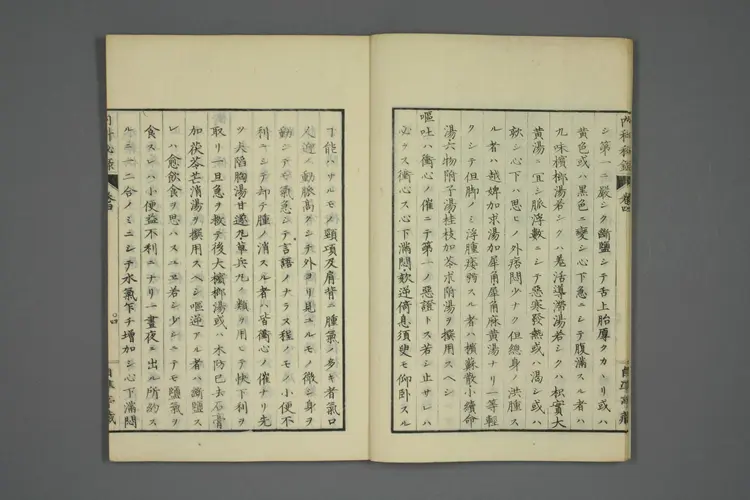 シ第一ニ嚴シク斷鹽シテ舌上胎厚クカヽリ或ハ
黄色或ハ黒色ニ變シ心下急ニシテ腹滿スル者ハ
九味檳榔湯若シクハ羗活導滯湯若シクハ枳實大
黄湯ニ宜シ脈浮數ニシテ惡寒發熱或ハ渇シ或ハ
欬シ心下ハ思ヒノ外痞悶少ナク但總身ノ洪腫ス
ル者ハ越婢加求湯加犀角犀角麻黄湯ナリ一等輕
クシテ但脚ノミ浮腫痿弱スルモノハ檳蘓散小續命
湯六物附子湯桂枝加苓求附湯ヲ撰用スヘシ
嘔吐ハ衝心ノ催ニテ第一ノ惡證トス若シ止サレハ
必ラス衝心ス心下滿悶歎逆倚息須臾モ仰卧スル
内科秘錄
卷四
自準亭藏
丁能ハサルモノ頸項及肩背ニ腫氣ノ多キ者氣口
人迎ノ動脈高クシテ外ヨリ見ユルモノ微シ身ヲ
動シテモ氣急シテ言語ノナラヌ程ノモノ小便不
利ニシテ却テ腫ノ消スル者ハ皆衝心ノ催ナリ先
ツ大陷胸湯甘遂丸葶兵丸ノ類ヲ用ヒテ快下利ヲ
取リ一旦急ヲ救テ後大檳榔湯或ハ木防巳去石膏
加茯苓芒消湯ヲ撰用スヘシ嘔逆アル者ハ斷鹽ス
レハ愈飲食ヲ思ハスユヱ若シ少シニテモ鹽氣ヲ
食スレハ小便益不利ニナリ一晝夜ニ出ル所約ス
ルニ一二合ノミニシテ水氣乍チ増加シ心下滿悶